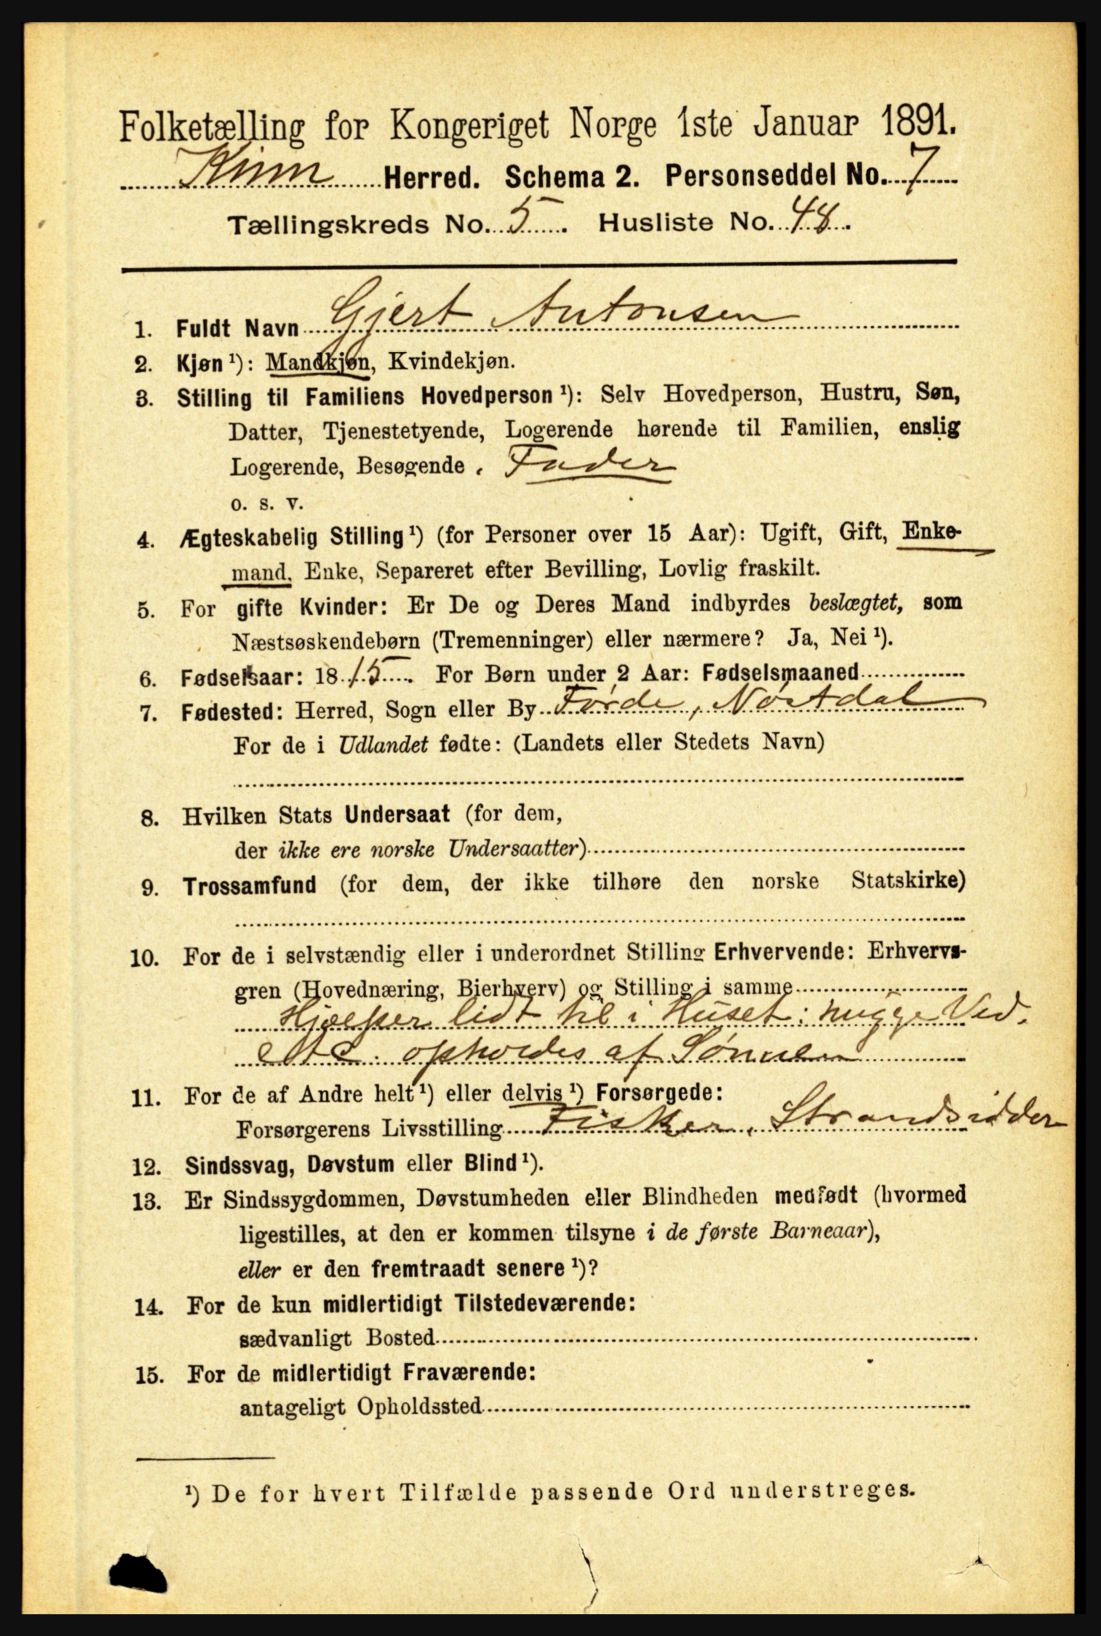 Folketælling for Kongeriget Norge 1ste Januar 1891.
Kinn Herred. Schema 2. Personseddel No. 7
Tællingskreds No. 5. Husliste No. 48.
1. Fuldt Navn Gjert Antonsen
2. Kjøn ¹): Mandkjøn, Kvindekjøn.
3. Stilling til Familiens Hovedperson ¹): Selv Hovedperson, Hustru, Søn,
Datter, Tjenestetyende, Logerende hørende til Familien, enslig
Logerende, Besøgende . Fader
o. s. v.
4. Ægteskabelig Stilling ¹) (for Personer over 15 Aar): Ugift, Gift, Enke-
mand, Enke, Separeret efter Bevilling, Lovlig fraskilt.
5. For gifte Kvinder: Er De og Deres Mand indbyrdes beslægtet, som
Næstsøskendebørn (Tremenninger) eller nærmere? Ja, Nei ¹).
6. Fødselsaar: 1815. For Børn under 2 Aar: Fødselsmaaned
7. Fødested: Herred, Sogn eller By Førde, Nøstdal
For de i Udlandet fødte: (Landets eller Stedets Navn)
8. Hvilken Stats Undersaat (for dem,
der ikke ere norske Undersaatter)
9. Trossamfund (for dem, der ikke tilhøre den norske Statskirke)
10. For de i selvstændig eller i underordnet Stilling Erhvervende: Erhvervs-
gren (Hovednæring, Bierhverv) og Stilling i samme
Hjælper lidt til i Huset: hugge Ved.
etc. opholdes af Sønnen
11. For de af Andre helt ¹) eller delvis ¹) Forsørgede:
Forsørgerens Livsstilling Fisker, Strandsidder
12. Sindssvag, Døvstum eller Blind ¹).
13. Er Sindssygdommen, Døvstumheden eller Blindheden medfødt (hvormed
ligestilles, at den er kommen tilsyne i de første Barneaar),
eller er den fremtraadt senere ¹)?
14. For de kun midlertidigt Tilstedeværende:
sædvanligt Bosted
15. For de midlertidigt Fraværende:
antageligt Opholdssted
¹) De for hvert Tilfælde passende Ord understreges.